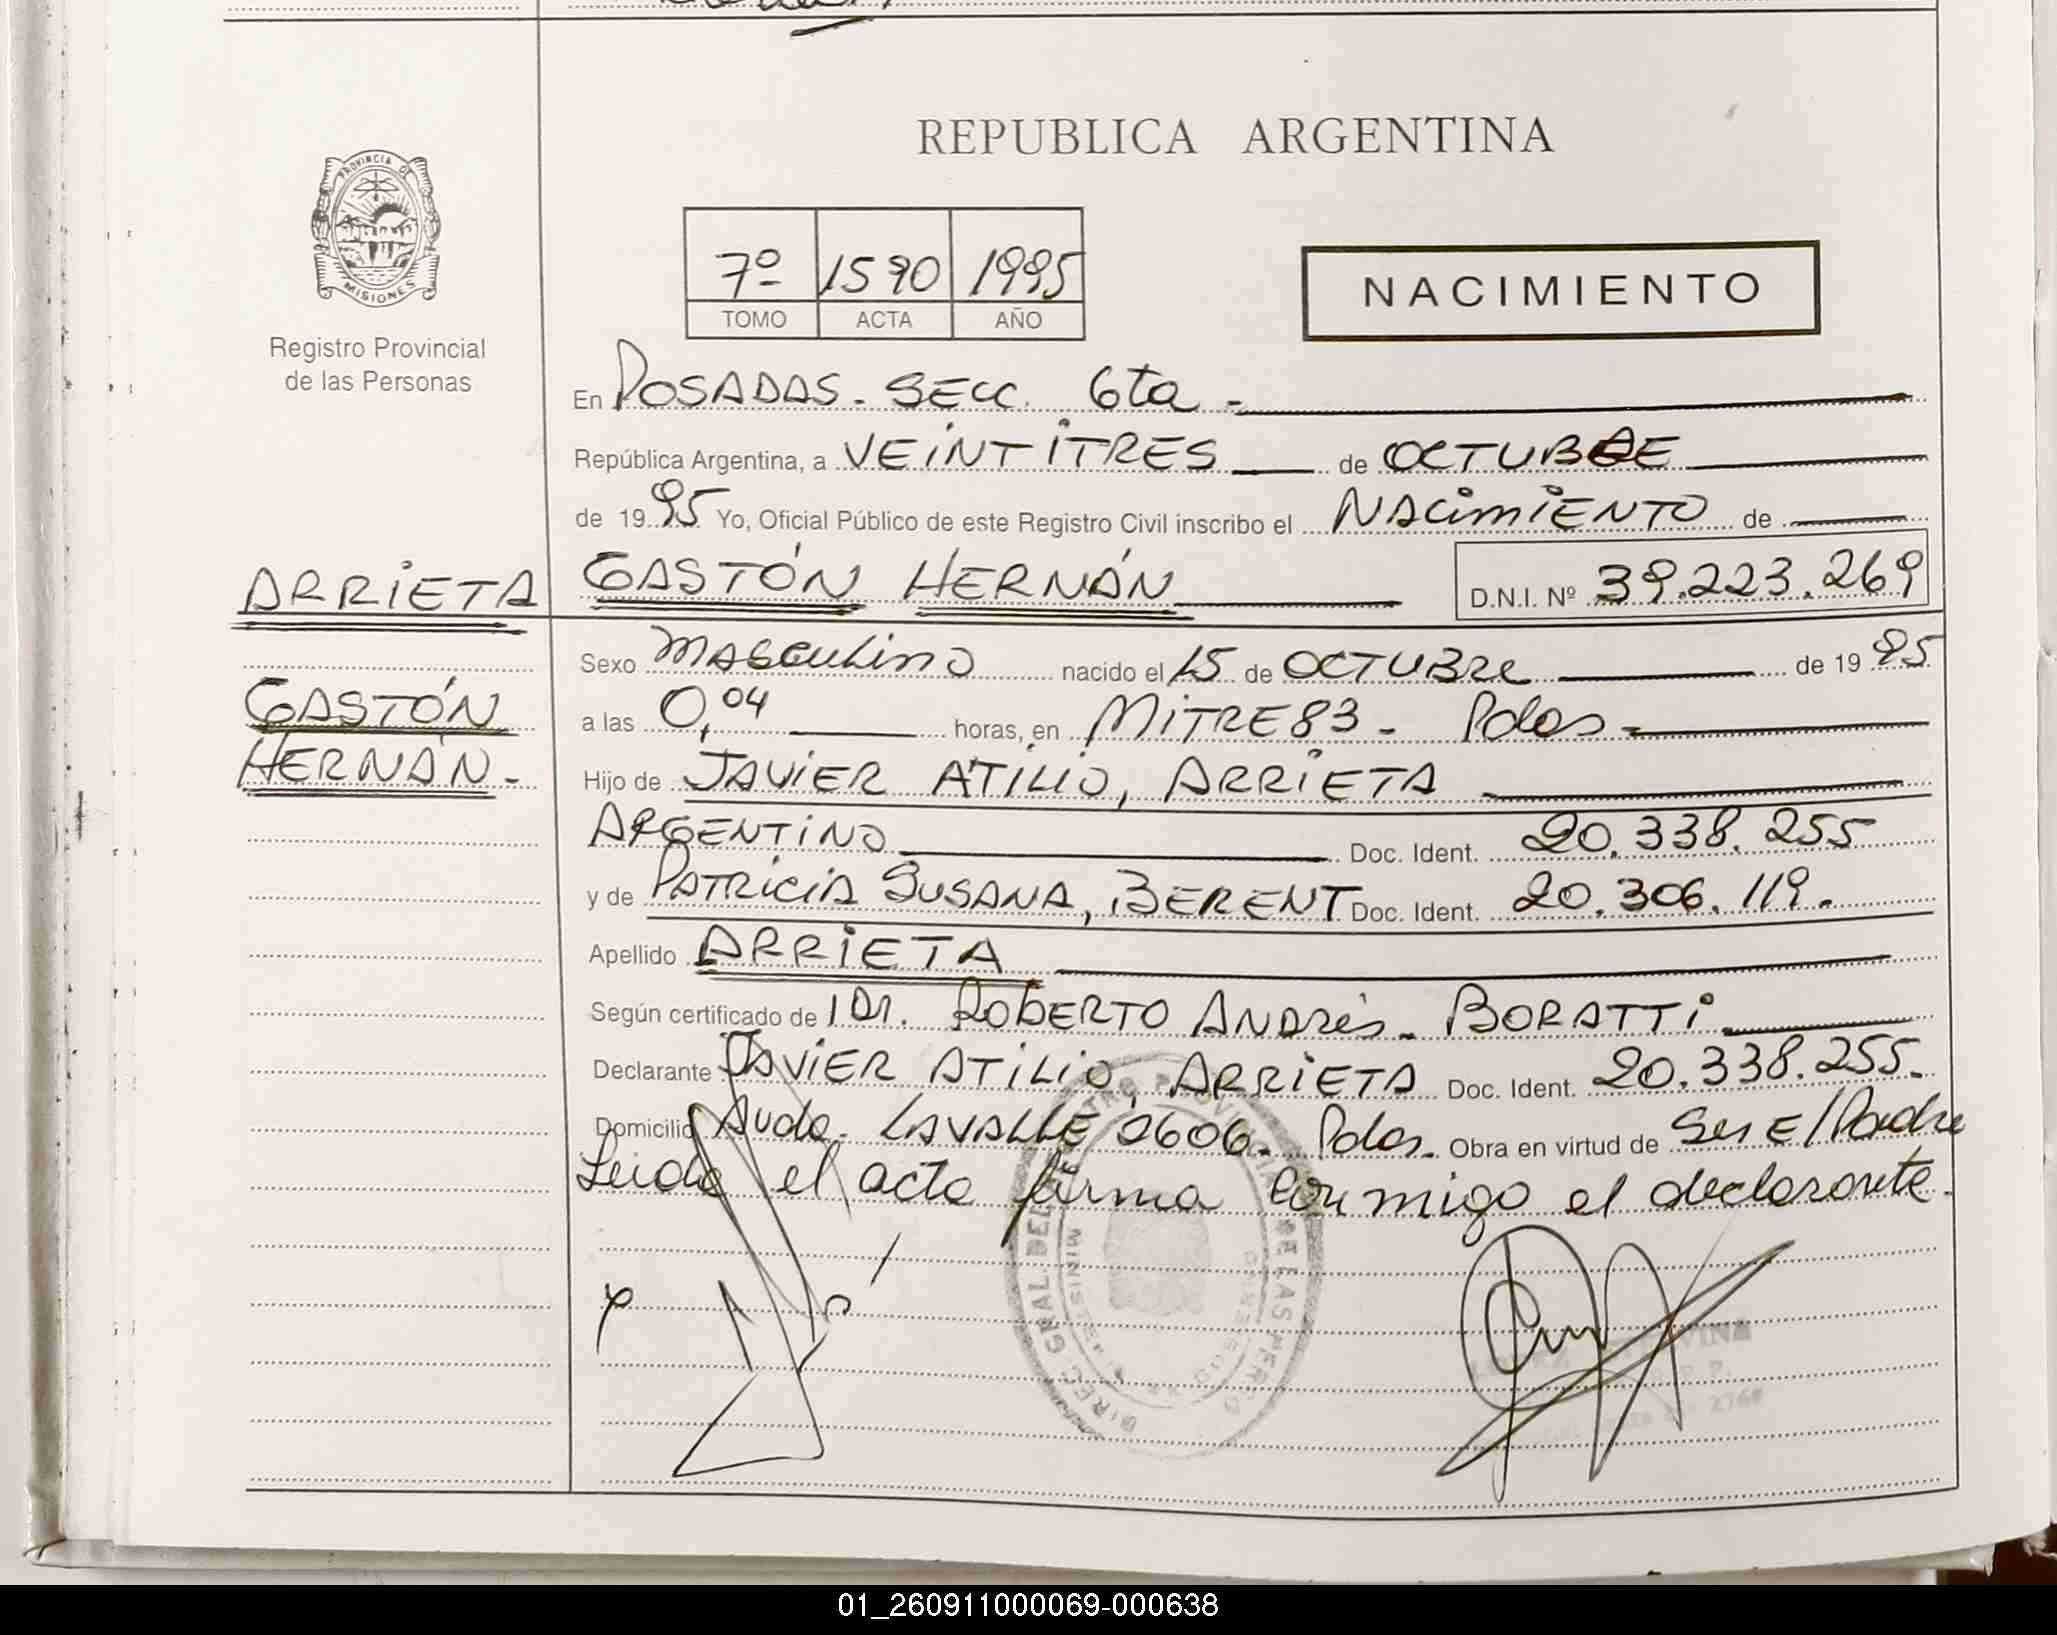 PROVINCIA DE
MISIONES
Registro Provincial
de las Personas
REPUBLICA ARGENTINA
7º 1590 1995
TOMO ACTA AÑO
NACIMIENTO
En POSADAS. SECC. 6ta -
República Argentina, a VEINTITRES de OCTUBRE
de 1995 Yo, Oficial Público de este Registro Civil inscribo el NACIMIENTO de
ARRIETA GASTÓN HERNÁN D.N.I. Nº 39.223.269
Sexo MASCULINO nacido el 15 de OCTUBRE de 1995
GASTÓN
a las 0,04 horas, en MITRE 83 - Pdas -
HERNÁN -
Hijo de JAVIER ATILIO, ARRIETA
ARGENTINO Doc. Ident. 20.338.255
y de PATRICIA SUSANA, BERENT Doc. Ident. 20.306.119.
Apellido ARRIETA
Según certificado de 1 Dr. ROBERTO ANDRÉS - BORATTI
Declarante JAVIER ATILIO, ARRIETA Doc. Ident. 20.338.255.
Domicilio Avda. LAVALLE 2606. Pdas. Obra en virtud de Ser E/Padre
Leida el acta firma conmigo el declarante.
DIREC. GRAL. DEL REGISTRO PROVINCIAL DE LAS PERSO
01_260911000069-000638